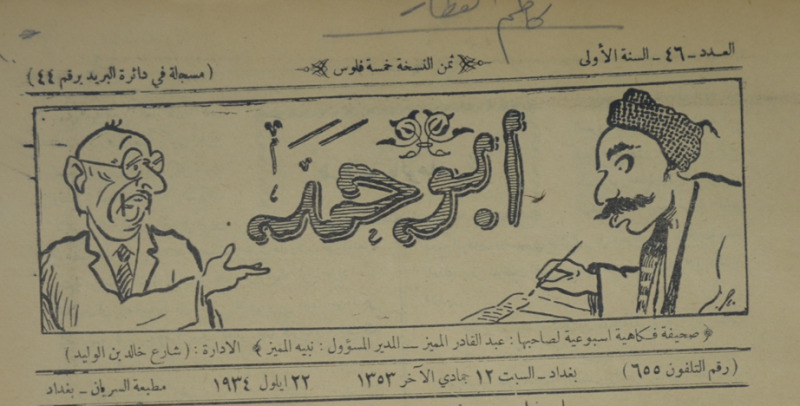 كاظم العطار
العدد - ٤٦ - السنة الأولى
ثمن النسخة خمسة فلوس
(مسجلة في دائرة البريد برقم ٤٤)
أبو حمد
﴿ صحيفة فكاهية اسبوعية لصاحبها : عبد القادر المميز - المدير المسؤول : نبيه المميز ﴾ الادارة : ( شارع خالد بن الوليد )
(رقم التلفون ٦٥٥) بغداد - السبت ١٢ جمادي الآخر ١٣٥٣ ٢٢ ايلول ١٩٣٤ مطبعة السريان - بغداد